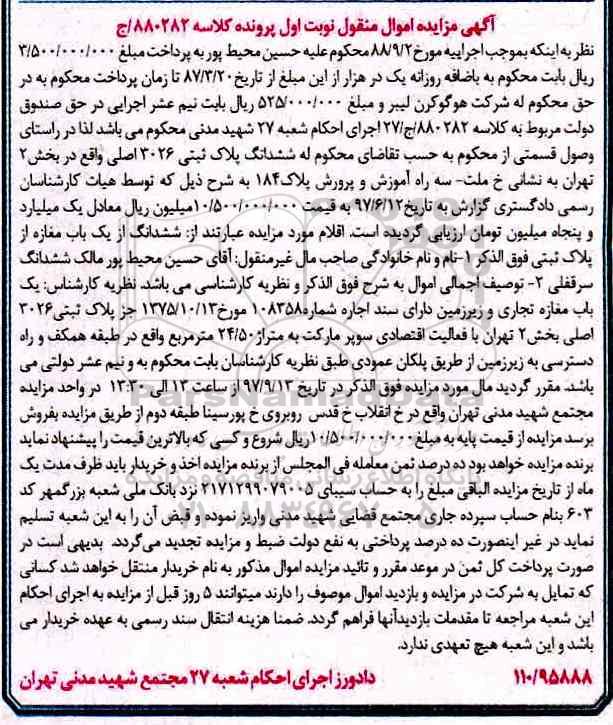 آگهی مزایده اموال منقول نوبت اول پرونده کلاسه ۸۸۰۲۸۲/ج
نظر به اینکه بموجب اجراییه مورخ۸۸/۹/۲محکوم علیه حسین محیط پور به پرداخت مبلغ ۳/۵۰۰/۰۰۰/۰۰۰
ریال بابت محکوم به باضافه روزانه یک در هزار از این مبلغ از تاریخ۸۷/۳/۲۰ تا زمان پرداخت محکوم به در
حق محکوم له شرکت هوگوکرن لیبر و مبلغ ۵۲۵/۰۰۰/۰۰۰ ریال بابت نیم عشر اجرایی در حق صندوق
دولت مربوط به کلاسه ۸۸۰۲۸۲/ج/۲۷ اجرای احکام شعبه ۲۷ شهید مدنی محکوم می باشد لذا در راستای
وصول قسمتی از محکوم به حسب تقاضای محکوم له ششدانگ پلاک ثبتی ۳۰۲۶ اصلی واقع در بخش۲
تهران به نشانی خ ملت- سه راه آموزش و پرورش پلاک۱۸۴ به شرح ذیل که توسط هیات کارشناسان
رسمی دادگستری گزارش به تاریخ۹۷/۶/۱۲ به قیمت ۱۰/۵۰۰/۰۰۰/۰۰۰میلیون ریال معادل یک میلیارد
و پنجاه میلیون تومان ارزیابی گردیده است. اقلام مورد مزایده عبارتند از: ششدانگ از یک باب مغازه از
پلاک ثبتی فوق الذکر ۱-نام و نام خانوادگی صاحب مال غیرمنقول: آقای حسین محیط پور مالک ششدانگ
سرقفلی ۲- توصیف اجمالی اموال به شرح فوق الذکر و نظریه کارشناسی می باشد. نظریه کارشناس: یک
باب مغازه تجاری و زیرزمین دارای سند اجاره شماره۱۰۸۳۵۸ مورخ۱۳۷۵/۱۰/۱۳ جز پلاک ثبتی۳۰۲۶
اصلی بخش۲ تهران با فعالیت اقتصادی سوپر مارکت به متراژ۲۴/۵۰ مترمربع واقع در طبقه همکف و راه
دسترسی به زیرزمین از طریق پلکان عمودی طبق نظریه کارشناسان بابت محکوم به و نیم عشر دولتی می
باشد. مقرر گردید مال مورد مزایده فوق الذکر در تاریخ ۹۷/۹/۱۳ از ساعت ۱۳ الی ۱۳:۳۰ در واحد مزایده
مجتمع شهید مدنی تهران واقع در خ انقلاب خ قدس روبروی خ پورسینا طبقه دوم از طریق مزایده بفروش
برسد مزایده از قیمت پایه به مبلغ ۱۰/۵۰۰/۰۰۰/۰۰۰ریال شروع و کسی که بالاترین قیمت را پیشنهاد نماید
برنده مزایده خواهد بود ده درصد ثمن معامله فی المجلس از برنده مزایده اخذ و خریدار باید ظرف مدت یک
ماه از تاریخ مزایده الباقی مبلغ را به حساب سیبای ۲۱۷۱۲۹۹۰۷۹۰۰۵ نزد بانک ملی شعبه بزرگمهر کد
۶۰۳ بنام حساب سپرده جاری مجتمع قضایی شهید مدنی واریز نموده و قبض آن را به این شعبه تسلیم
نماید در غیر اینصورت ده درصد پرداختی به نفع دولت ضبط و مزایده تجدید می‌گردد. بدیهی است در
صورت پرداخت کل ثمن در موعد مقرر و تائید مزایده اموال مذکور به نام خریدار منتقل خواهد شد کسانی
که تمایل به شرکت در مزایده و بازدید اموال موصوف را دارند میتوانند ۵ روز قبل از مزایده به اجرای احکام
این شعبه مراجعه تا مقدمات بازدیدآنها فراهم گردد. ضمنا هزینه انتقال سند رسمی به عهده خریدار می
باشد و این شعبه هیچ تعهدی ندارد.
۱۱۰/۹۵۸۸۸ دادورز اجرای احکام شعبه ۲۷ مجتمع شهید مدنی تهران